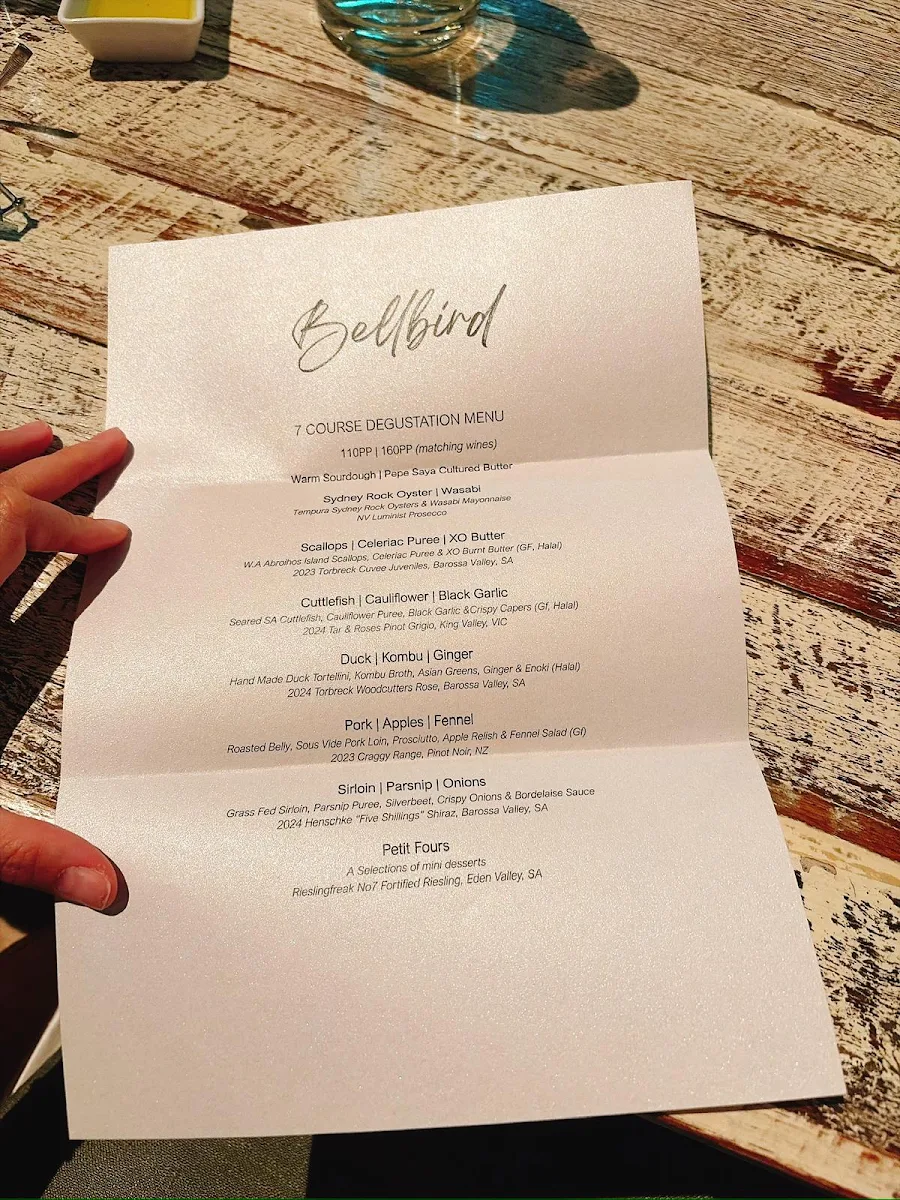 Bellbird
7 COURSE DEGUSTATION MENU
110PP | 160PP (matching wines)
Warm Sourdough | Pepe Saya Cultured Butter
Sydney Rock Oyster | Wasabi
Tempura Sydney Rock Oysters & Wasabi Mayonnaise
NV Luminist Prosecco
Scallops | Celeriac Puree | XO Butter
W.A Abrolhos Island Scallops, Celeriac Puree & XO Burnt Butter (GF, Halal)
2023 Torbreck Cuvee Juveniles, Barossa Valley, SA
Cuttlefish | Cauliflower | Black Garlic
Seared SA Cuttlefish, Cauliflower Puree, Black Garlic &Crispy Capers (Gf, Halal)
2024 Tar & Roses Pinot Grigio, King Valley, VIC
Duck | Kombu | Ginger
Hand Made Duck Tortellini, Kombu Broth, Asian Greens, Ginger & Enoki (Halal)
2024 Torbreck Woodcutters Rose, Barossa Valley, SA
Pork | Apples | Fennel
Roasted Belly, Sous Vide Pork Loin, Prosciutto, Apple Relish & Fennel Salad (Gf)
2023 Craggy Range, Pinot Noir, NZ
Sirloin | Parsnip | Onions
Grass Fed Sirloin, Parsnip Puree, Silverbeet, Crispy Onions & Bordelaise Sauce
2024 Henschke "Five Shillings" Shiraz, Barossa Valley, SA
Petit Fours
A Selections of mini desserts
Rieslingfreak No7 Fortified Riesling, Eden Valley, SA